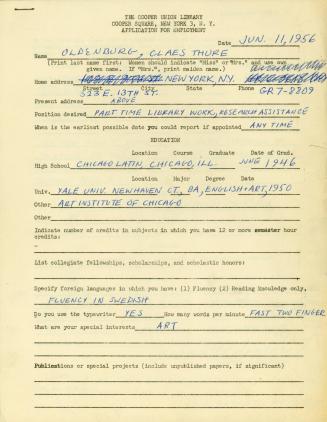 THE COOPER UNION LIBRARY
COOPER SQUARE, NEW YORK 3, N. Y.
APPLICATION FOR EMPLOYMENT
Date JUN. 11, 1956
Name OLDENBURG, CLAES THURE
(Print last name first. Women should indicate "Miss" or "Mrs." and use own
given name. If "Mrs.", print maiden name.)
Home address NEW YORK, N.Y.
Street City State Phone
523 E. 13TH ST. GR 7-8309
Present address ABOVE
Position desired PART TIME LIBRARY WORK, RESEARCH ASSISTANCE
When is the earliest possible date you could report if appointed ANY TIME
EDUCATION
Location Course Graduate Date of Grad.
High School CHICAGO LATIN, CHICAGO, ILL. JUNE 1946
Location Major Degree Date
Univ. YALE UNIV. NEW HAVEN CT., BA, ENGLISH + ART, 1950
Other ART INSTITUTE OF CHICAGO
Other
Indicate number of credits in subjects in which you have 12 or more semester hour
credits:
List collegiate fellowships, scholarships, and scholastic honors:
Specify foreign languages in which you have: (1) Fluency (2) Reading knowledge only,
FLUENCY IN SWEDISH
Do you use the typewriter YES How many words per minute FAST TWO FINGER
What are your special interests ART
Publications or special projects (include unpublished papers, if significant)